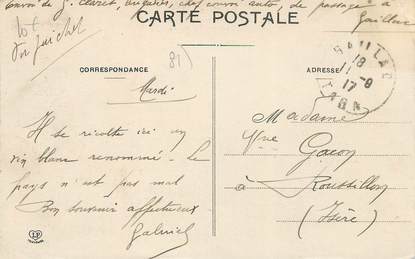 Envoi de G. Claret, brigadier, chef convoi auto, de passage à
Gaillac
CARTE POSTALE
CORRESPONDANCE
81
Mardi
Il se récolte ici un
vin blanc renommé. Le
pays n'est pas mal
Bon souvenir affectueux
Gabriel
ADRESSE
GAILLAC
18
11-9
17
TARN
Madame
Vve Gacon
à Roussillon
(Isère)